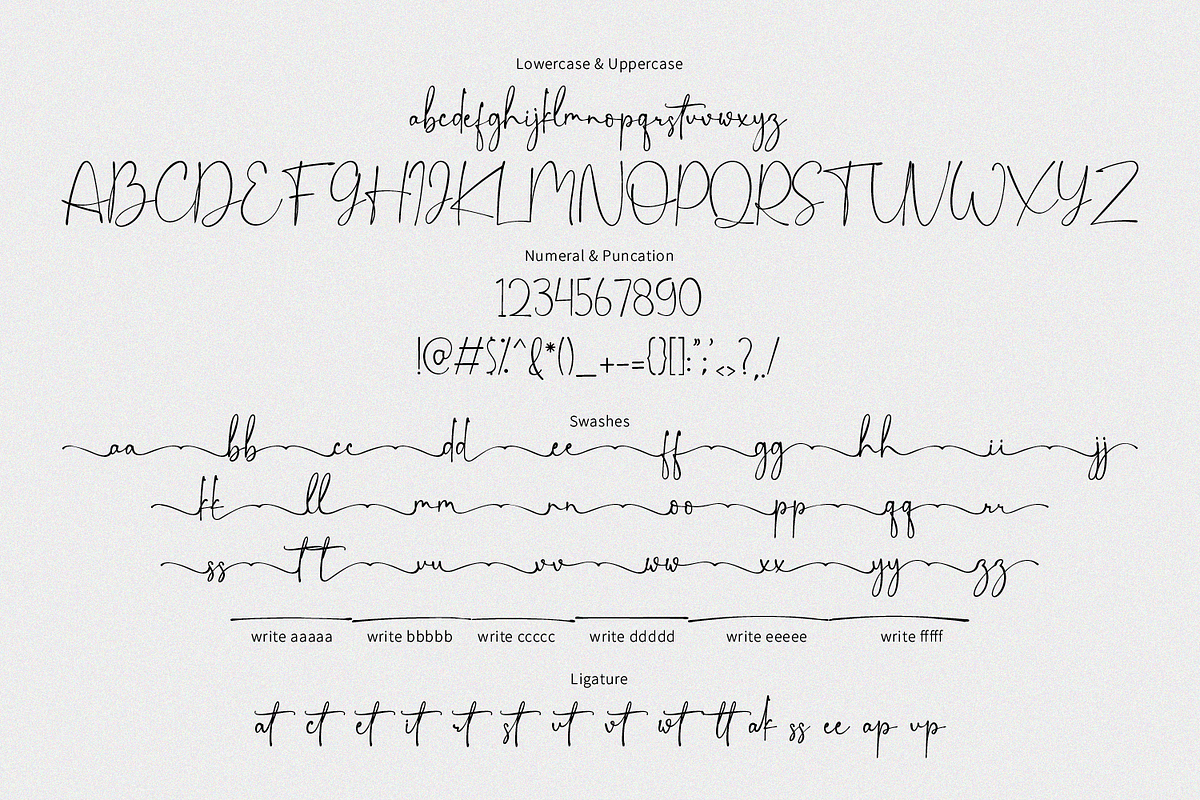 Lowercase & Uppercase
abcdefghijklmnopqrstuvwxyz
ABCDEFGHIJKLMNOPQRSTUVWXYZ
Numeral & Puncation
1234567890
!@#$%^&*()_+-={}[]:";'<>?,./
Swashes
aa bb cc dd ee ff gg hh ii jj
kk ll mm nn oo pp qq rr
ss tt uu vv ww xx yy zz
write aaaaa write bbbbb write ccccc write ddddd write eeeee write fffff
Ligature
at ct et it rt st ut vt wt tt ak ss ee ap up